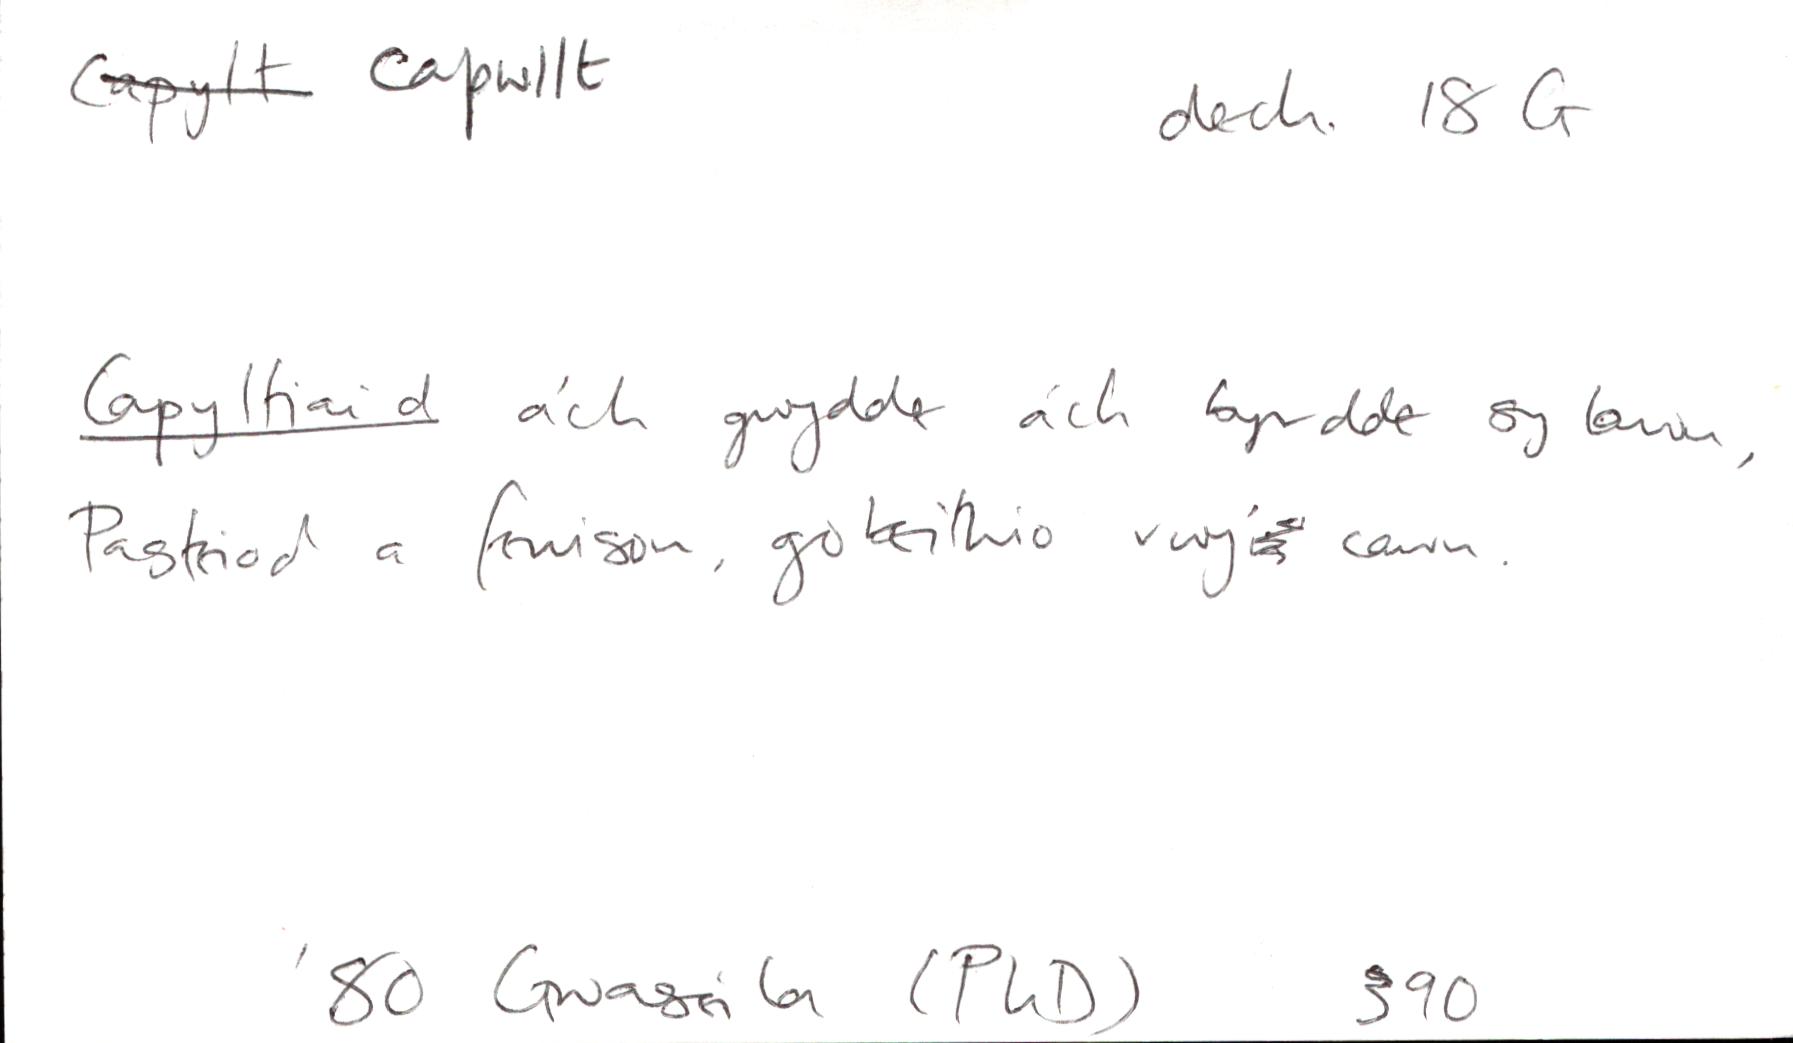 Capylt capwllt dech. 18 G
Capyltiaid ách gwydde ách byrdde sy lawn,
Pasteiod a fenison, gobeithio rwy'i cawn.
'80 Gwasèila (PhD) 390